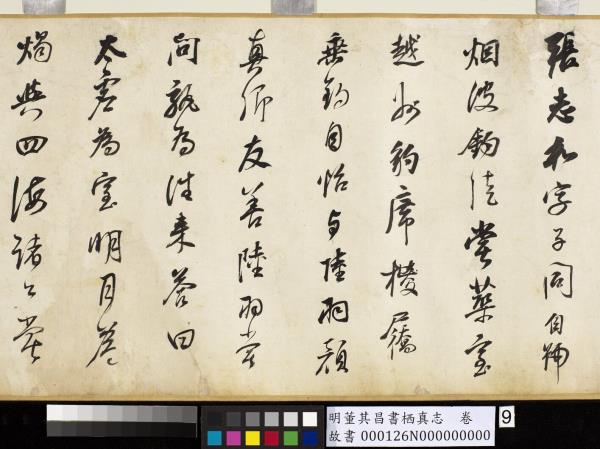 張志和字子同自號
烟波釣徒嘗築室
越州豹席椶屩
垂釣自怡與陸羽顏
真卿友善陸羽嘗
問孰為往來答曰
太虛為室明月為
燭與四海諸公常
明董其昌書栖真志　卷
故書 000126N000000000
9